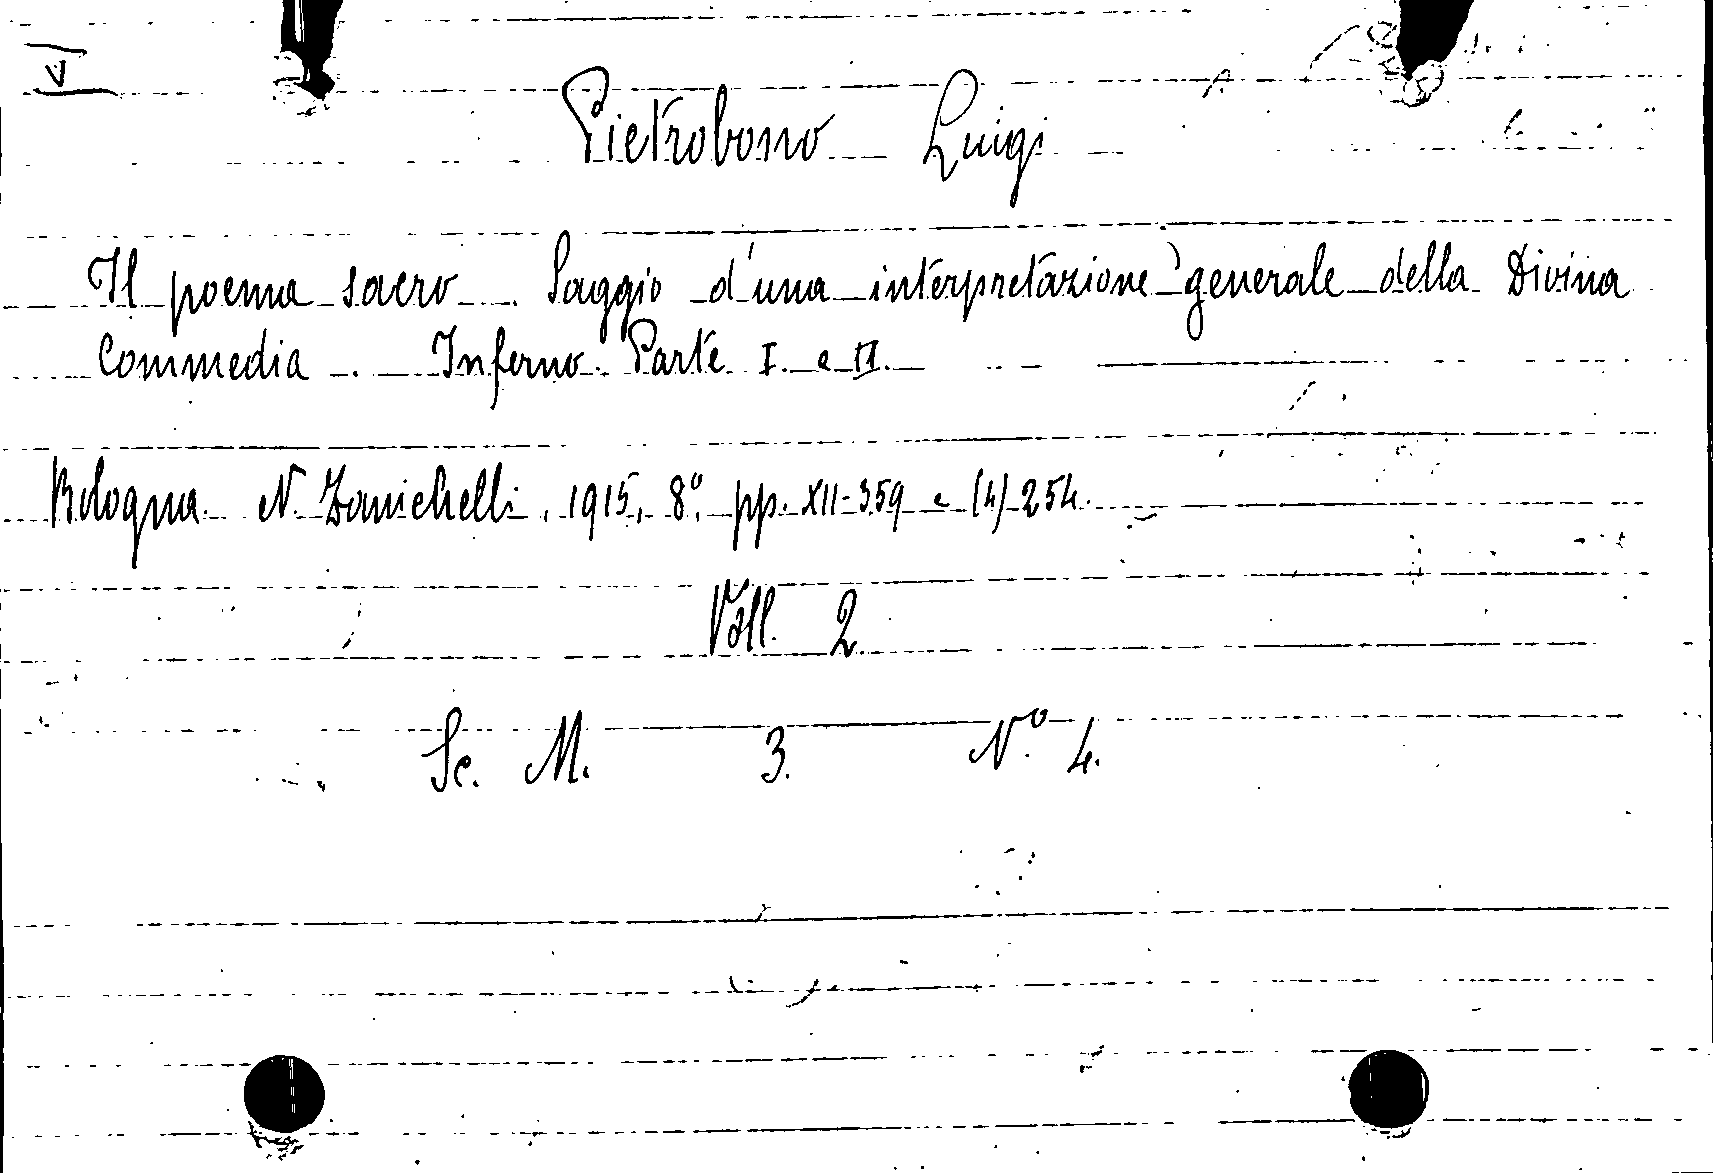 V
Pietrobono Luigi
Il poema sacro. Saggio d'una interpretazione generale della Divina
Commedia. Inferno. Parte I. e II.
Bologna N. Zanichelli, 1915, 8°, pp. XII-359 e (4) 254.
Voll. 2.
Sc. M. 3. N° 4.